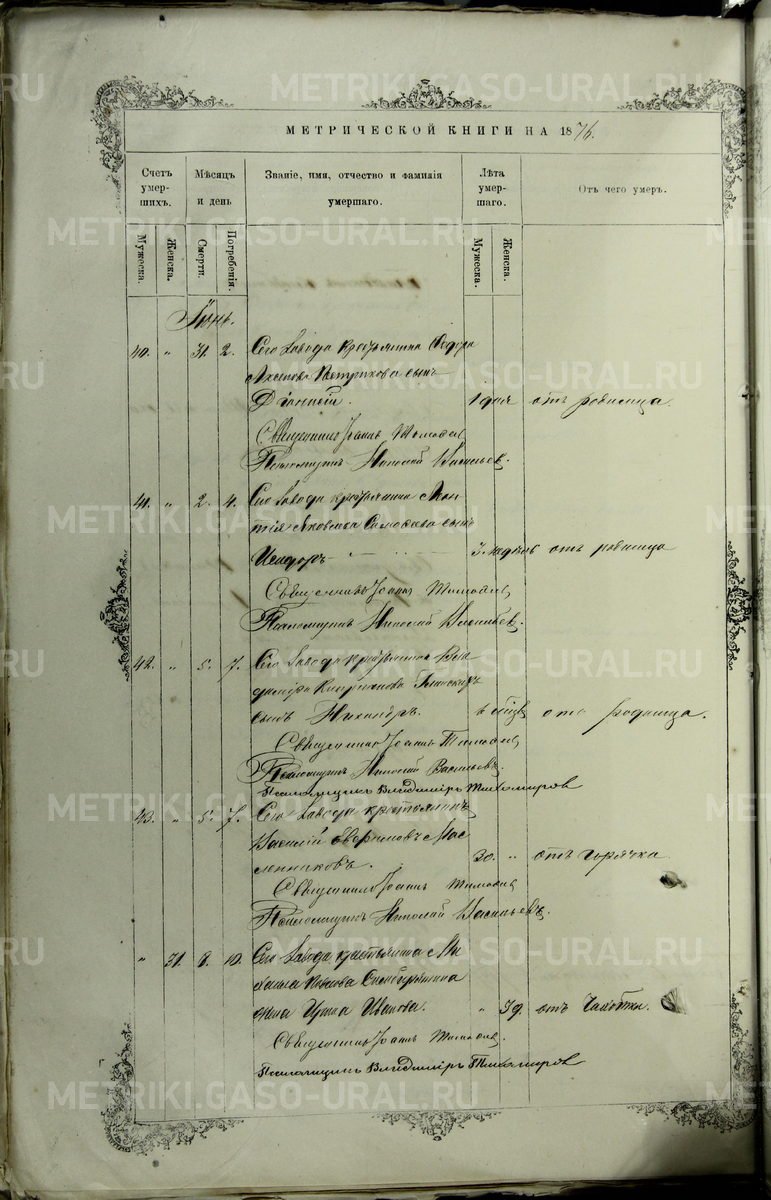 МЕТРИЧЕСКОЙ КНИГИ НА 1876.
Счетъ умершихъ. Мѣсяцъ и день Званіе, имя, отчество и фамилія умершаго. Лѣта умершаго. Отъ чего умеръ.
Мужеска. Женска. Смерти. Погребенія. Мужеска. Женска.
Іюнь.
40. " 31. 2. Сего Завода крестьянина Ѳедора
сынъ
1 дня отъ родимца
Священникъ Іоаннъ
Псаломщикъ Николай Васильевъ.
41. " 2. 4. Сего Завода крестьянина
Яковлева сынъ
Исидоръ 3 недѣль отъ родимца
Священникъ Іоаннъ
Псаломщикъ Николай Васильевъ.
42. " 5. 7. Сего Завода крестьянина Вла
диміра
сынъ Никандръ. отъ родимца.
Священникъ Іоаннъ
Псаломщикъ Николай Васильевъ.
Псаломщикъ Владиміръ Тихомировъ
43. " 5. 7. Сего Завода крестьянинъ
Василій Мас
ленниковъ. 30. " отъ горячка
Священникъ Іоаннъ
Псаломщикъ Николай Васильевъ.
" 31. 8. 10. Сего Завода крестьянина Ми
хаила
жена Ирина Иванова. " 39. отъ чахотки.
Священникъ Іоаннъ
Псаломщикъ Владиміръ Тихомировъ
METRIKI.GASO-URAL.RU